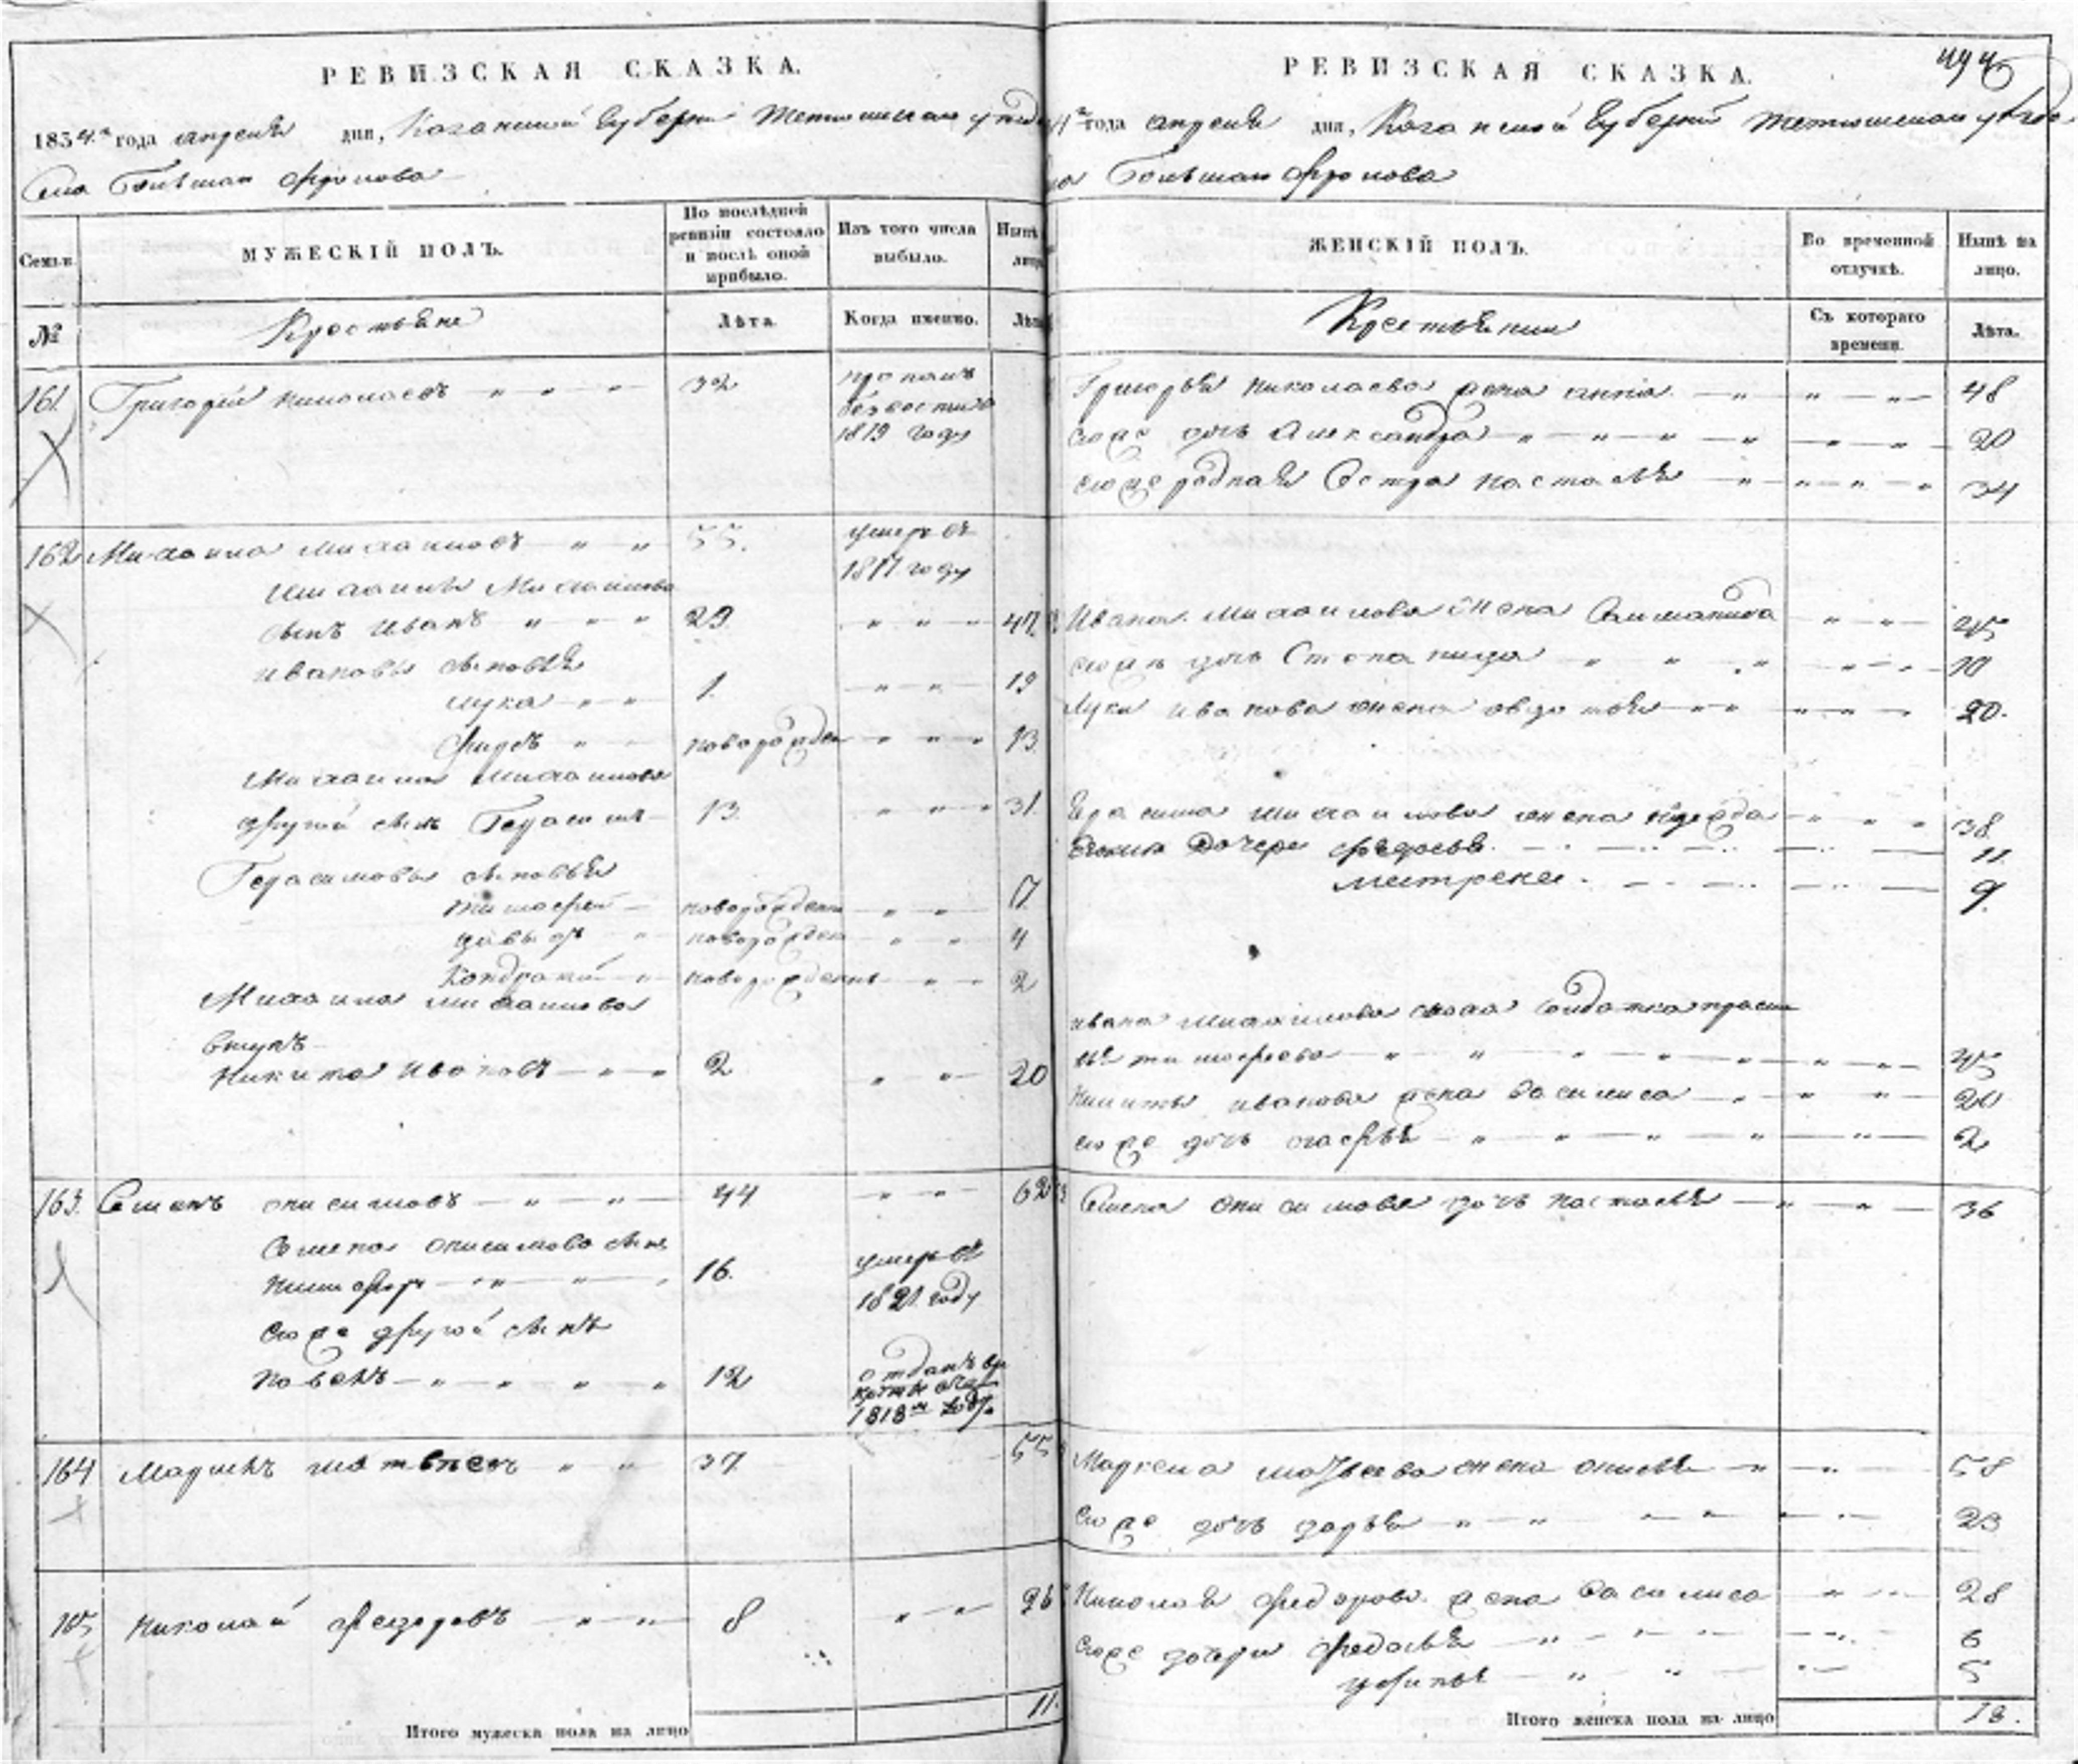 РЕВИЗСКАЯ СКАЗКА.
1834 года апреля дня, Казанской Губернии Тетюшскаго уезда
Села Большаго Фролова
Семьи.
МУЖЕСКІЙ ПОЛЪ.
По послѣдней ревизіи состояло и послѣ оной прибыло.
Изъ того числа выбыло.
Нынѣ на лицо
№
Крестьяне
Лѣта.
Когда именно.
Лѣта
161. Григорій Николаевъ 32 пропалъ
безвестно
1819 году
162 Михаила Михаиловъ 55. умеръ въ
1817 году
Михаилы Михаилова
сынъ Иванъ 29. 47
Ивановы сыновья
Лука 1. 19
новорожден 13.
Михаила Михаилова
другой сынъ Герасимъ 13. 31.
Герасимовы сыновья
Тимофей новорожденн 7.
Давыдъ новорожден 4
Кондратій новорожденнъ 2
Михаила Михаилова
внукъ
Никита Ивановъ 2 20
163. Семенъ Онисимовъ 44 62
Семена Онисимова сынъ
Никифоръ 16. умеръ въ
1821 году
Егоже другой сынъ
Павелъ 12 отданъ въ
1818 году
164 Матвеевъ 37. 55
165 Николай Федоровъ 8 26
Итого мужеска пола на лицо 11.
РЕВИЗСКАЯ СКАЗКА.
года апреля дня, Казанской Губерніи Тетюшскаго уезда
Большаго Фролова
ЖЕНСКІЙ ПОЛЪ.
Во временной отлучкѣ.
Нынѣ на лицо.
Крестьянки
Съ котораго времени.
Лѣта.
Григорья Николаева жена Анна 48
егоже дочь Александра 20
егоже родная сестра Настасья 34
Ивана Михаилова жена 45
егоже дочь Степанида 10
Луки Иванова жена Авдотья 20.
Герасима Михаилова жена 38.
Егожъ дочери Федосья 11.
Матрена 9.
Ивана Михаилова сноха солдатка Праско
вья Тимофеева 45
Никиты Иванова жена Василиса 20
егоже дочь Агафья 2
Семена Онисимова дочь Настасья 36
Матвеева жена Анисья 58
егоже дочь Дарья 23
Николая Федорова жена Василиса 28
егоже дочери Федосья 6
5
Итого женска пола на лицо 18.